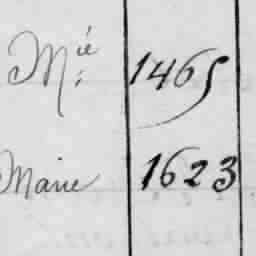 Mie: 1465
Marie 1623